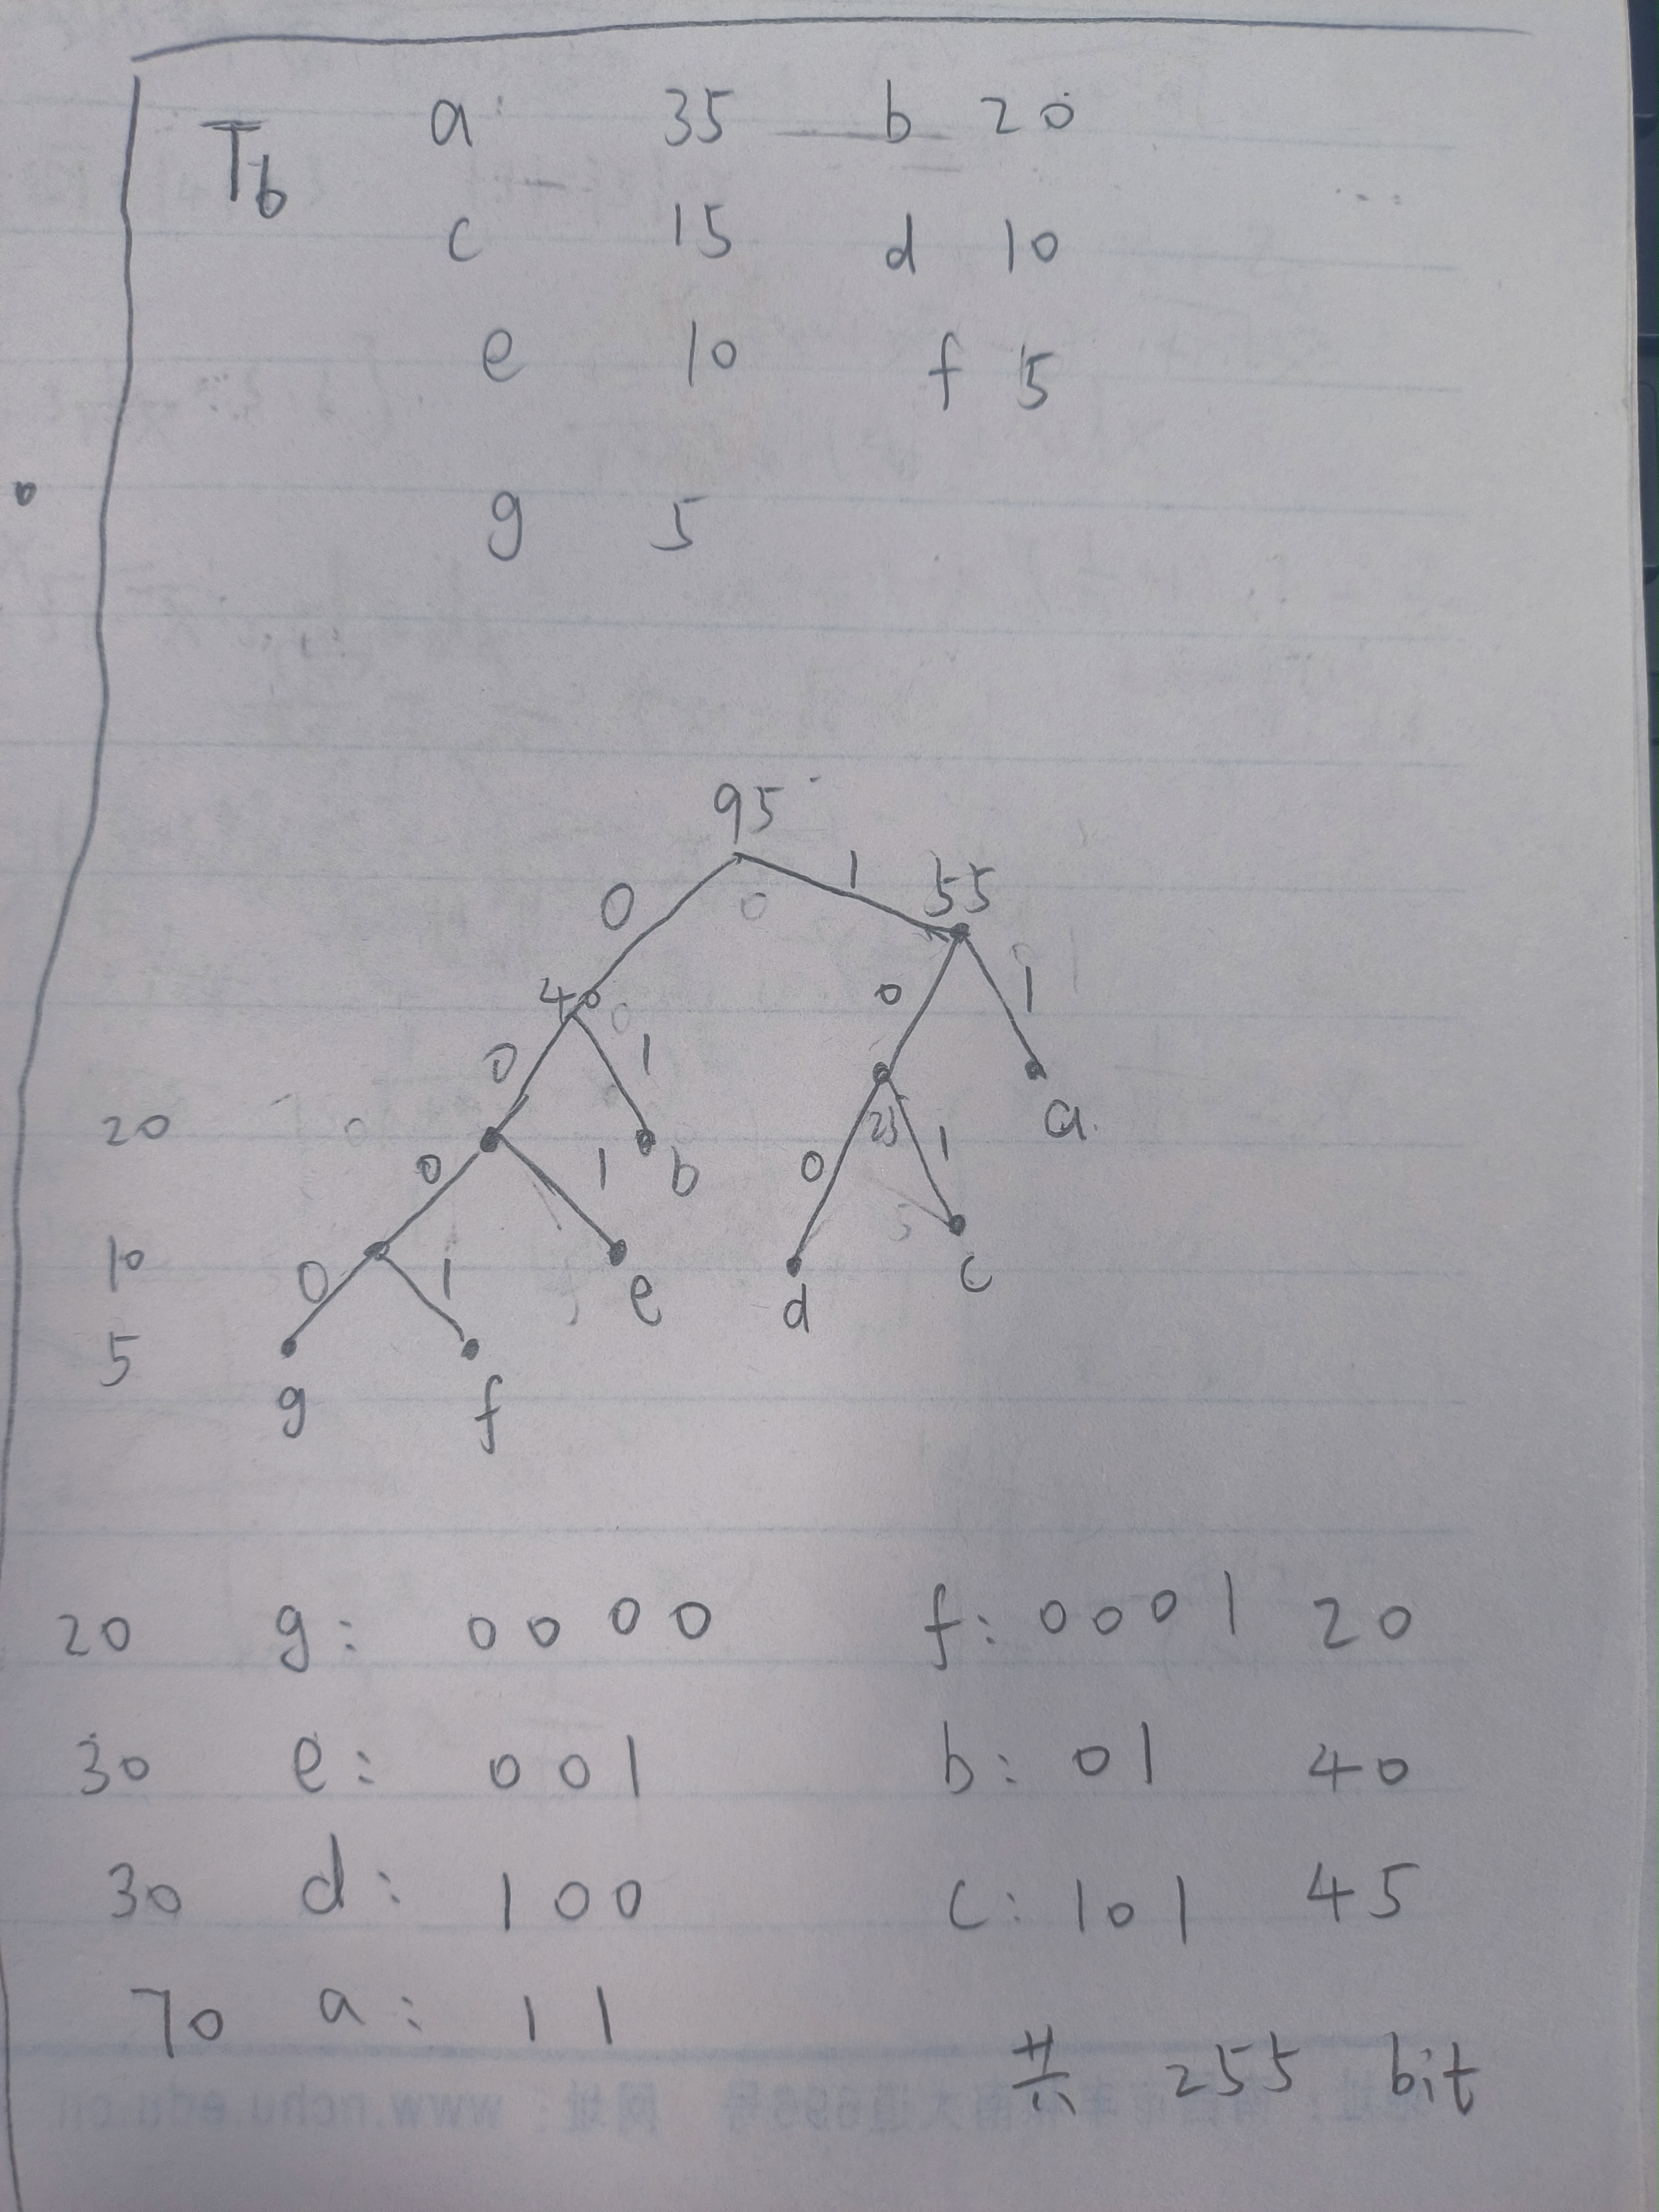 T6 a: 35 b 20
c 15 d 10
e 10 f 5
g 5
95
0 1 55
40 0 1
0 1
20 0 1 b 0 25 1 a
10 0 1 e d c
5
g f
20 g: 0000 f: 0001 20
30 e: 001 b: 01 40
30 d: 100 c: 101 45
70 a: 11
共 255 bit
www.nchu.edu.cn